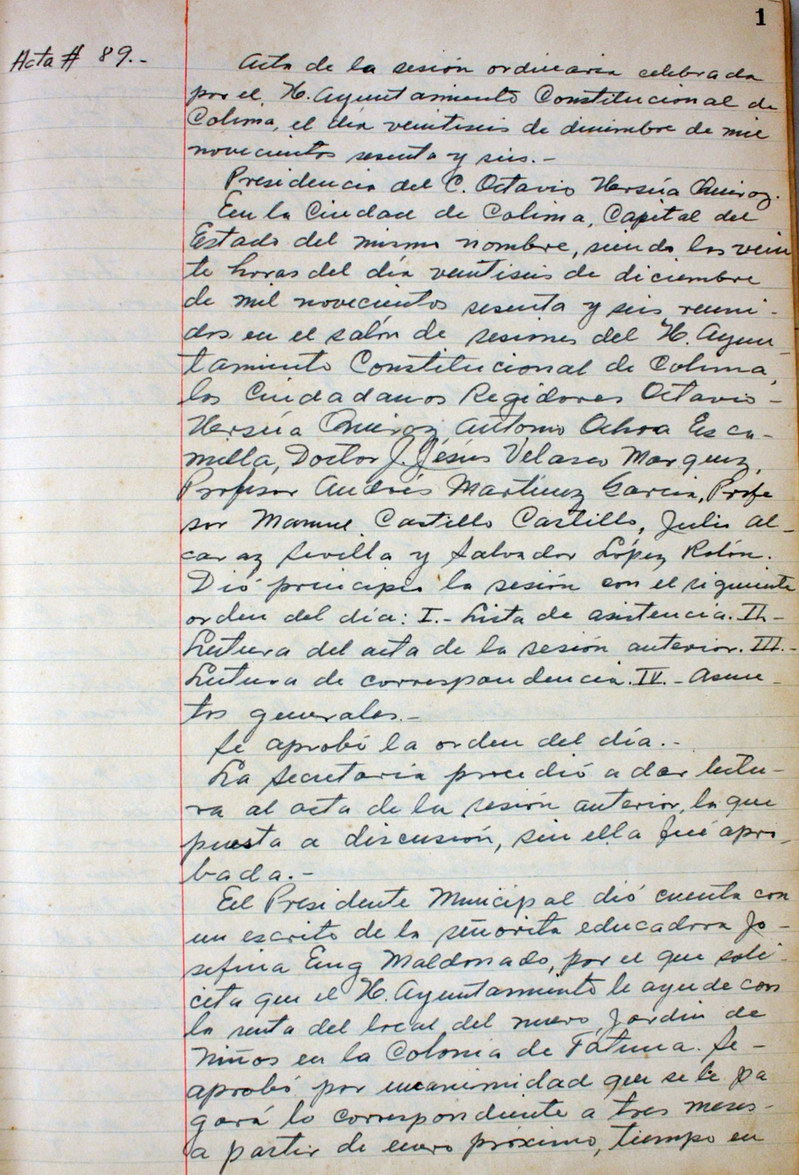 1
Acta # 89.-
Acta de la sesión ordinaria celebrada
por el H. Ayuntamiento Constitucional de
Colima, el día veintiseis de diciembre de mil
novecientos sesenta y seis.-
Presidencia del C. Octavio Hersúa Quiroz.
En la Ciudad de Colima, Capital del
Estado del mismo nombre, siendo las vein
te horas del día veintiseis de diciembre
de mil novecientos sesenta y seis, reuni-
dos en el salón de sesiones del H. Ayun-
tamiento Constitucional de Colima,
los Ciudadanos Regidores Octavio -
Hersúa Quiroz, Antonio Ochoa Esca-
milla, Doctor J. Jesús Velasco Marquez,
Profesor Andrés Martínez Garcia, Profe
sor Manuel Castillo Castillo, Julio Al-
caraz Sevilla y Salvador López Rolón.
Dió principio la sesión con el siguiente
orden del día: I.- Lista de asistencia. II.-
Lectura del acta de la sesión anterior. III.-
Lectura de correspondencia. IV.- Asun-
tos generales.-
Se aprobó la orden del día.-
La Secretaria procedió a dar lectu-
ra al acta de la sesión anterior, la que
puesta a discusión, sin ella fué apro-
bada.-
El Presidente Municipal dió cuenta con
un escrito de la señorita educadora Jo-
sefina Eng Maldonado, por el que soli-
cita que el H. Ayuntamiento le ayude con
la renta del local del nuevo Jardin de
Niños en la Colonia de Fátima. Se -
aprobó por unanimidad que se le pa
gará lo correspondiente a tres meses -
a partir de enero próximo, tiempo en